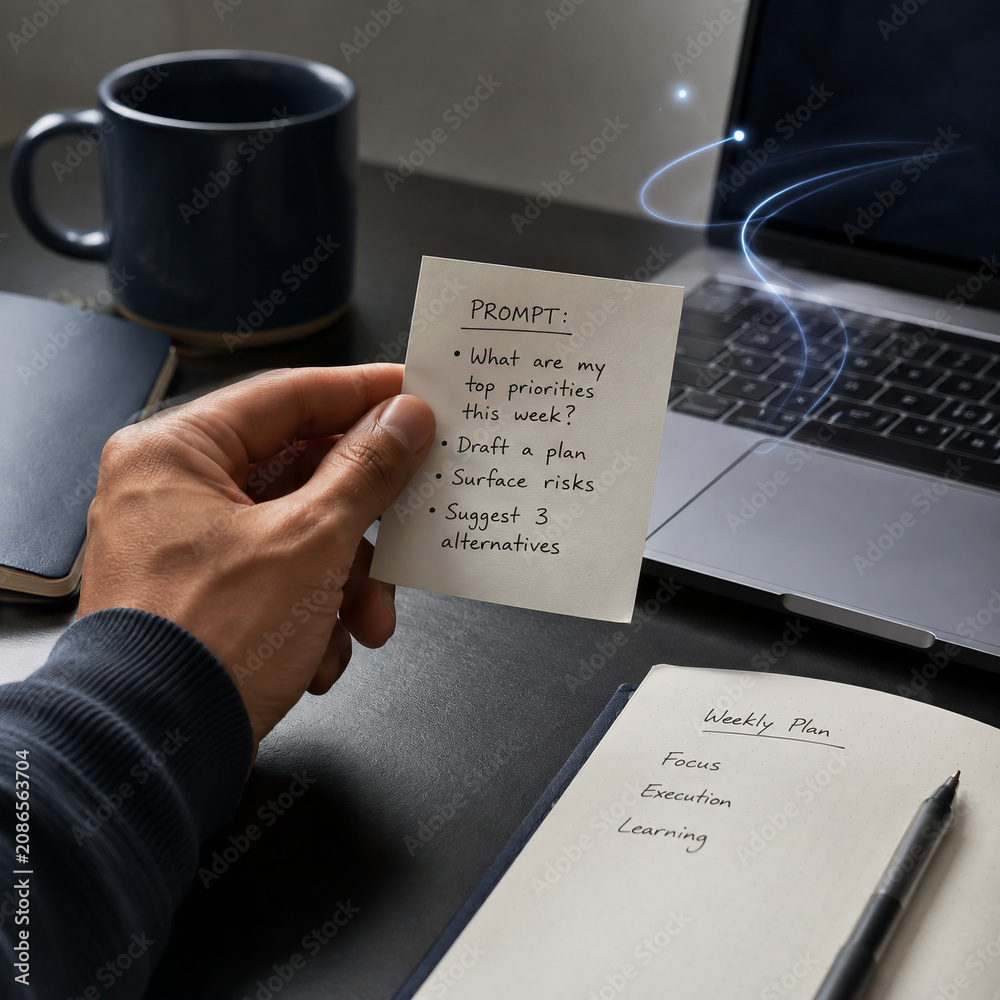 PROMPT:
• What are my
top priorities
this week?
• Draft a plan
• Surface risks
• Suggest 3
alternatives
Weekly Plan
Focus
Execution
Learning
Adobe Stock | #2086563704